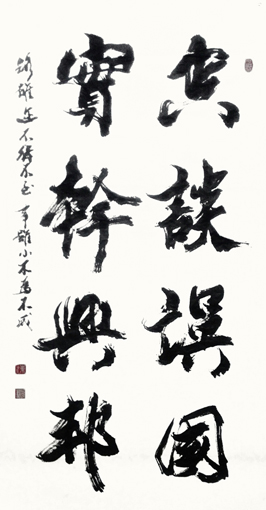 空談誤國
實幹興邦
路雖不行不至事雖小不為不成